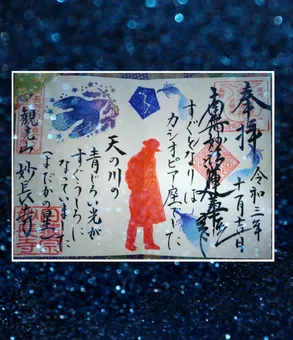 奉拝
令和三年
十一月十三日
南無妙法蓮華経
すぐとなりは
カシオピア座でした
天の川の
青じろい光が
すぐうしろに
なっていました
「よだかの星」
観光山
妙長寺